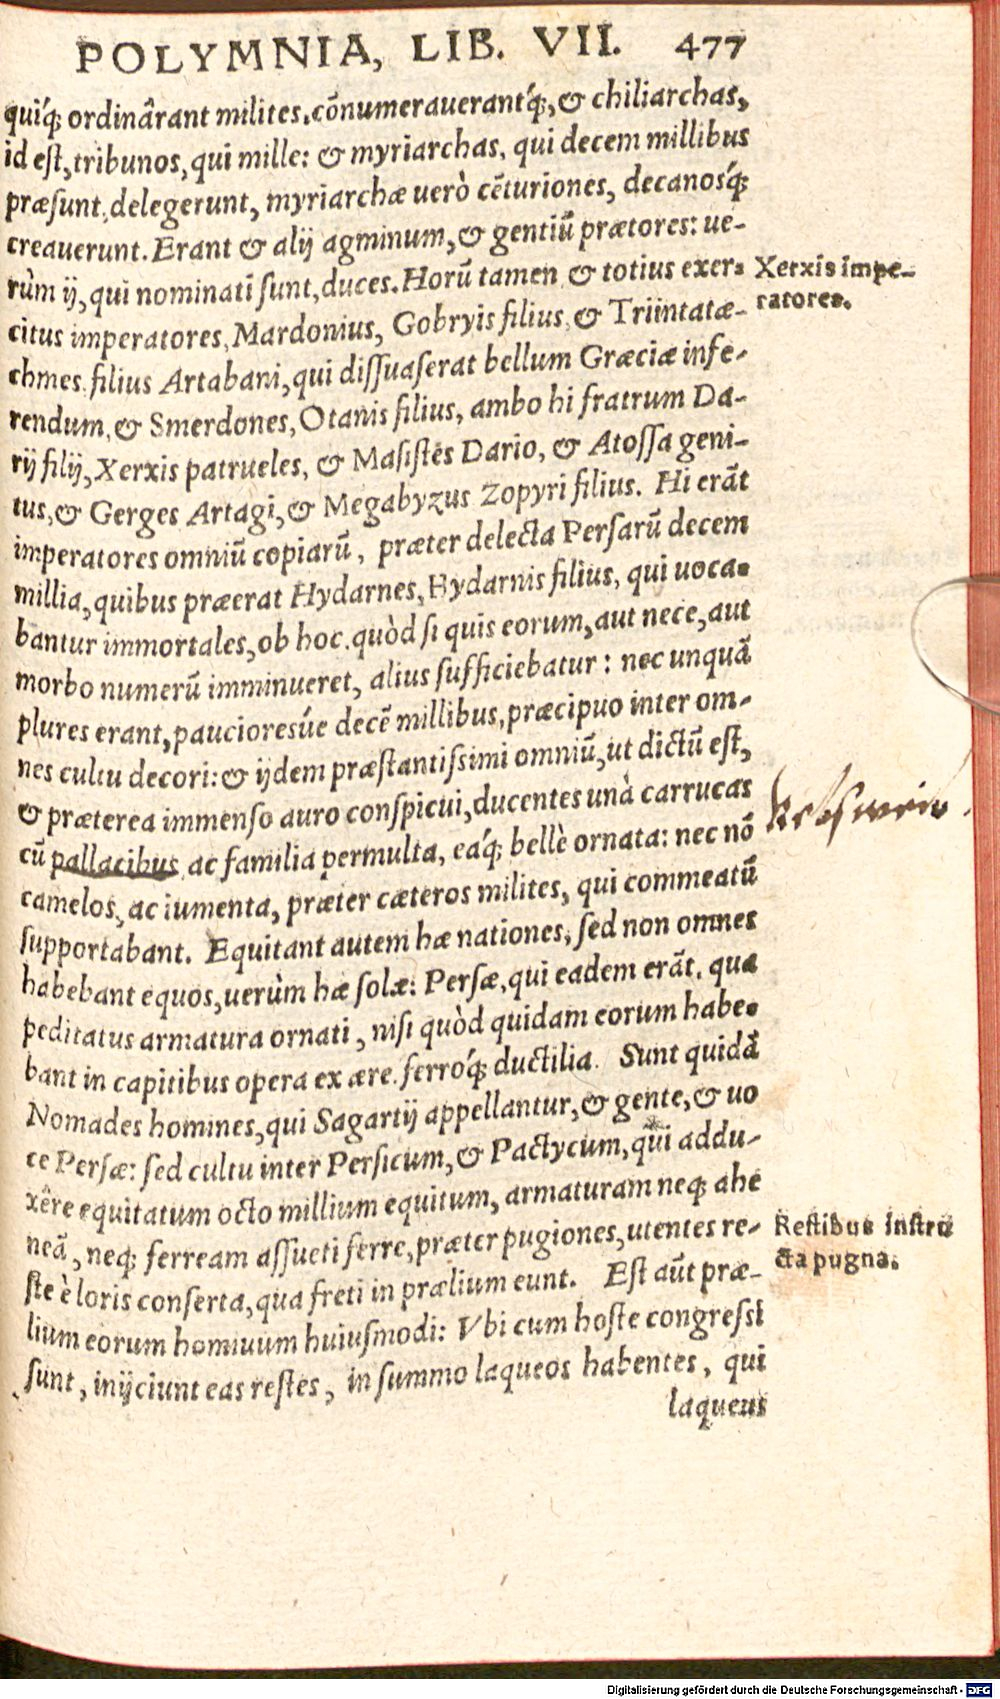 POLYMNIA, LIB. VII. 477
quiq́; ordinârant milites, cõnumeraverantq́;, & chiliarchas,
id est, tribunos, qui mille: & myriarchas, qui decem millibus
præsunt, delegerunt, myriarchæ uerò cẽturiones, decanosq́;
creauerunt. Erant & alij agminum, & gentiũ prætores: ue-
rùm ij, qui nominati sunt, duces. Horũ tamen & totius exer-
citus imperatores, Mardonius, Gobryis filius, & Triintatæ-
chmes filius Artabani, qui dissuaserat bellum Græciæ infe-
rendum, & Smerdones, Otanis filius, ambo hi fratrum Da-
rij filij, Xerxis patrueles, & Masistes Dario, & Atossa geni-
tus, & Gerges Artagi, & Megabyzus Zopyri filius. Hi erãt
imperatores omniũ copiarũ, præter delecta Persarũ decem
millia, quibus præerat Hydarnes, Hydarnis filius, qui uoca-
bantur immortales, ob hoc, quòd si quis eorum, aut nece, aut
morbo numerũ imminueret, alius sufficiebatur: nec unquã
plures erant, paucioreśue decẽ millibus, præcipuo inter om-
nes cultu decori: & ijdem præstantissimi omniũ, ut dictũ est,
& præterea immenso auro conspicui, ducentes unà carrucas
cũ pallacibus ac familia permulta, eaq́; bellè ornata: nec nõ
camelos, ac iumenta, præter cæteros milites, qui commeatũ
supportabant. Equitant autem hæ nationes, sed non omnes
habebant equos, uerùm hæ solæ: Persæ, qui eadem erãt, qua
peditatus armatura ornati, nisi quòd quidam eorum habe-
bant in capitibus opera ex ære, ferroq́; ductilia. Sunt quidã
Nomades homines, qui Sagartij appellantur, & gente, & uo
ce Persæ: sed cultu inter Persicum, & Pactycum, qui addu-
xêre equitatum octo millium equitum, armaturam neq; ahe
neã, neq; ferream assueti ferre, præter pugiones, utentes re-
ste è loris conserta, qua freti in prælium eunt. Est aũt præ-
lium eorum homiuum huiusmodi: Vbi cum hoste congressi
sunt, inijciunt eas restes, in summo laqueos habentes, qui
laqueus
Xerxis impe-
ratores.
Restibus instru
cta pugna.
Digitalisierung gefördert durch die Deutsche Forschungsgemeinschaft - DFG